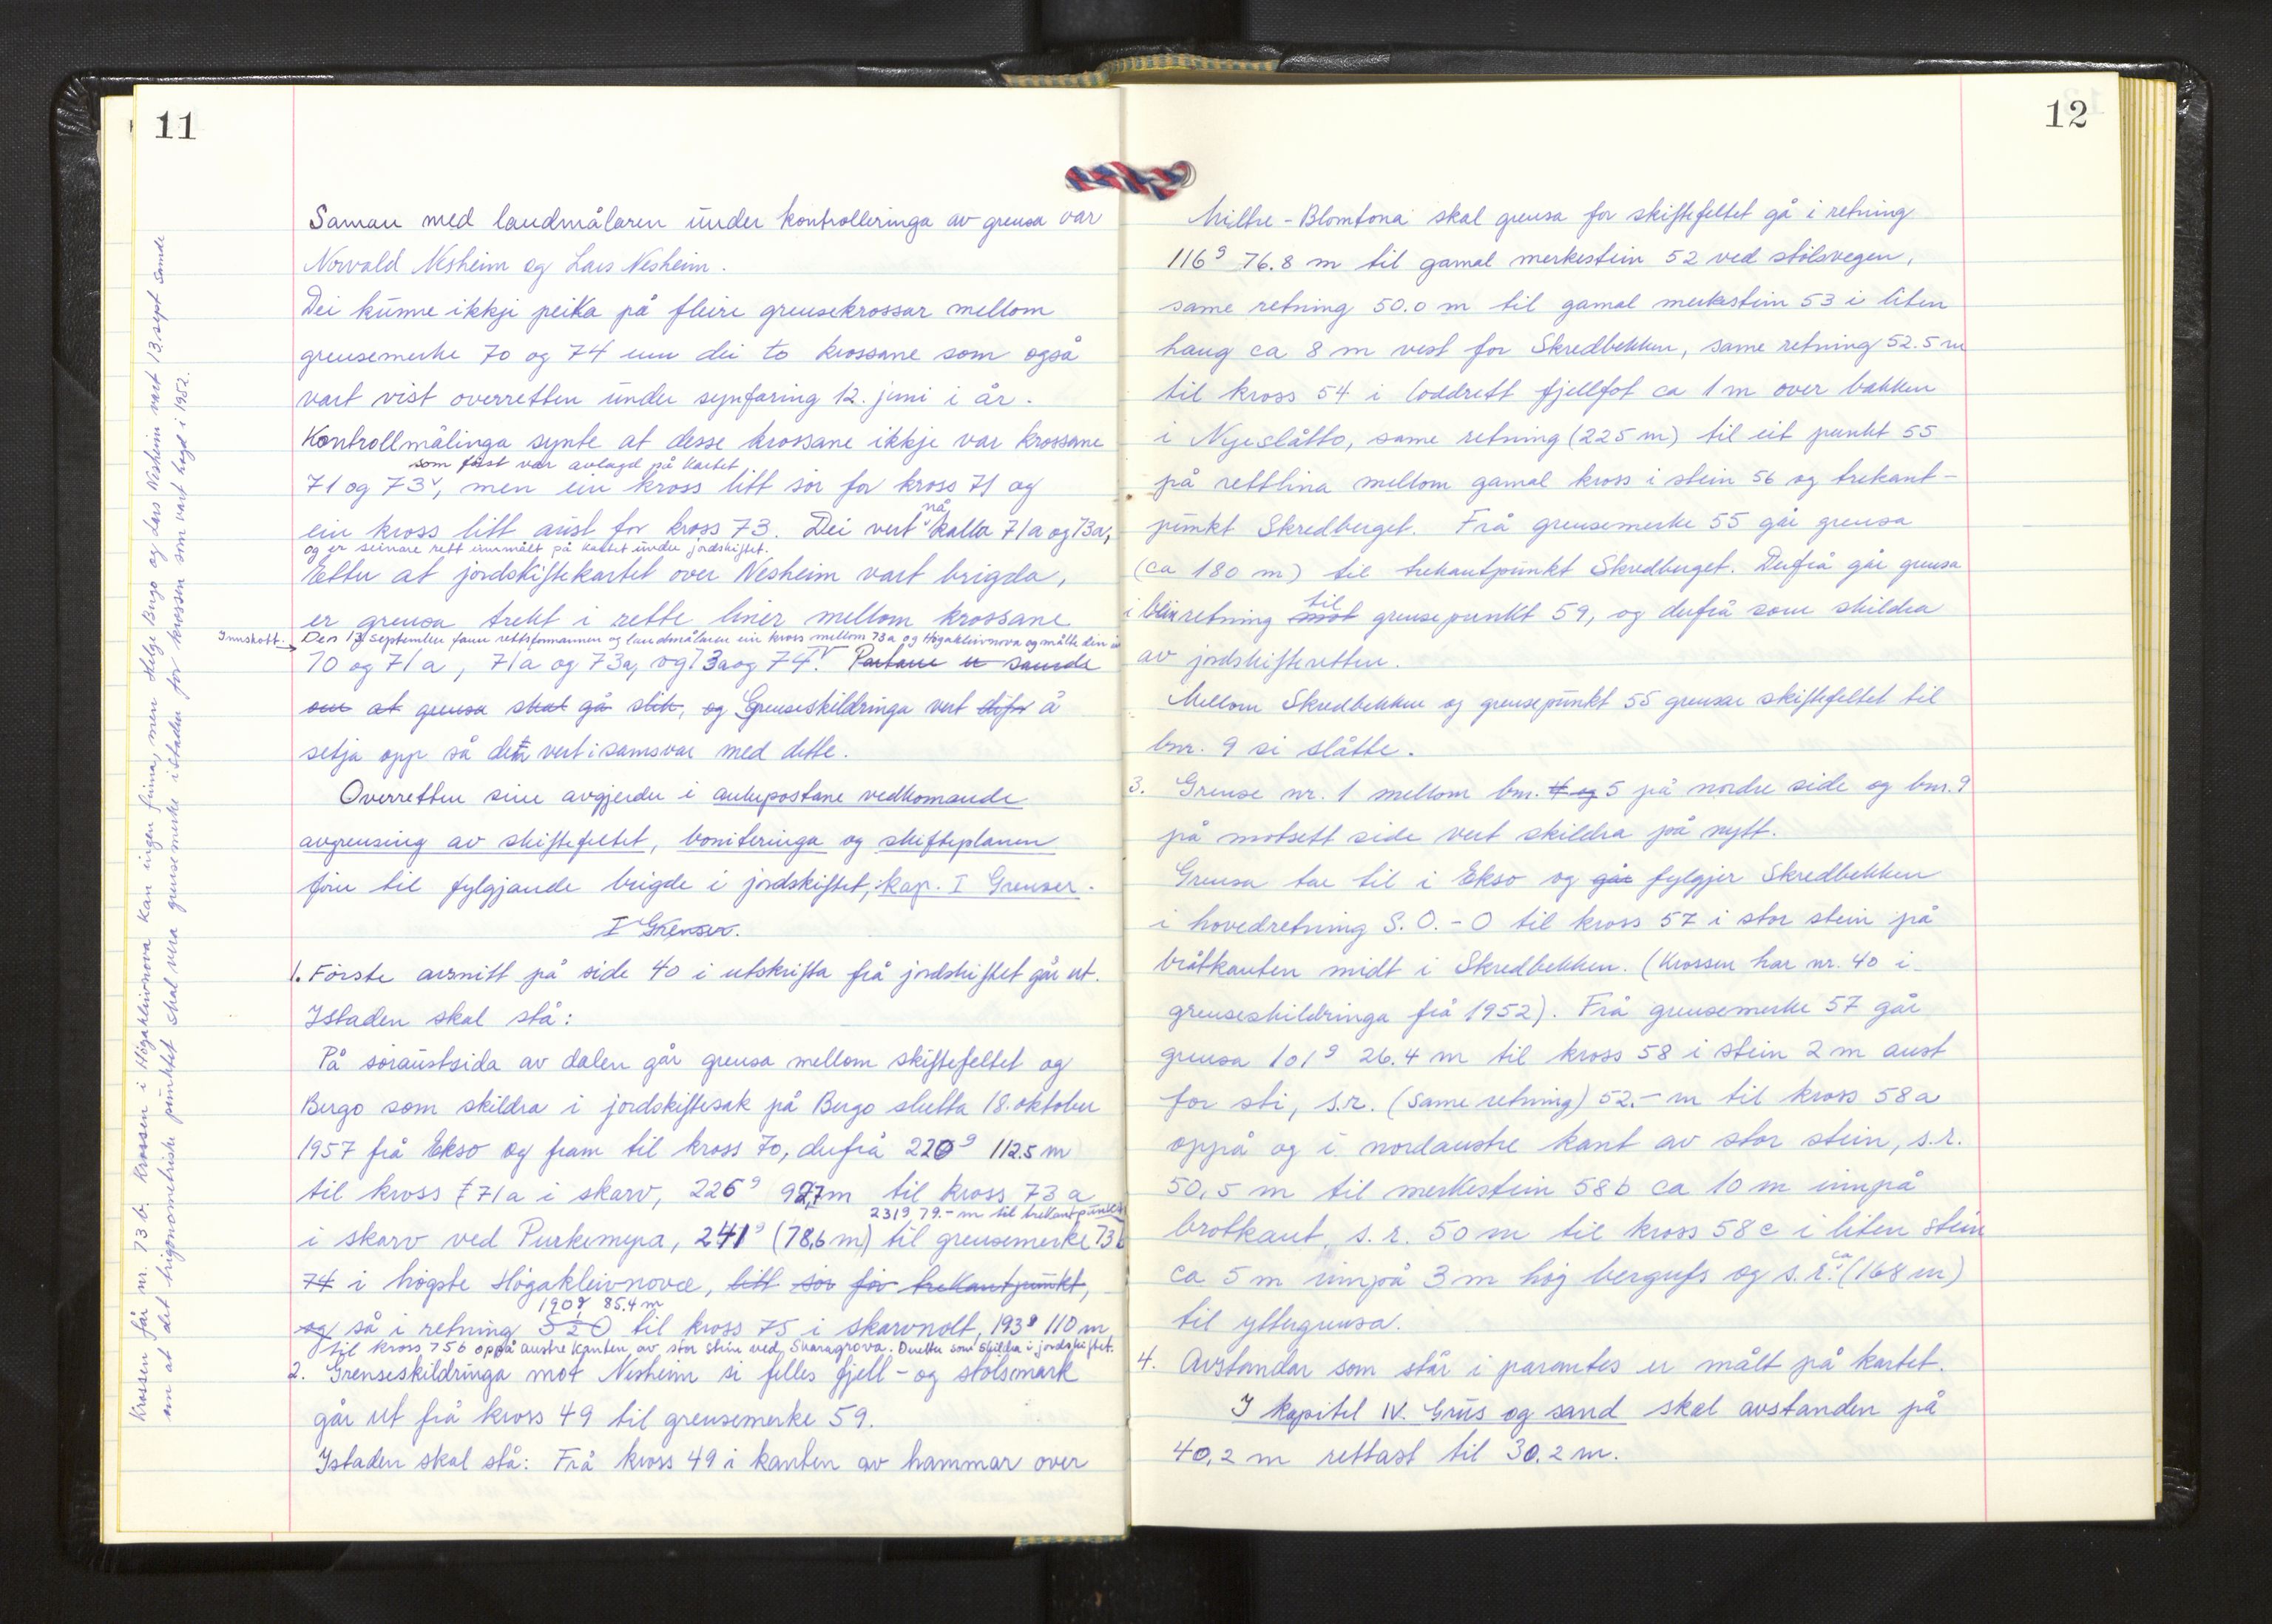 11
Saman med landmålaren under kontrolleringa av grensa var
Norvald Nesheim og Lars Nesheim.
Dei kunne ikkje peika på fleire grensekrossar mellom
grensemerke 70 og 74 enn dei to krossane som også
vart vist overretten under synfaring 12. juni i år.
Kontrollmålinga synte at desse krossane ikkje var krossane
som først var avlagd på kartet
71 og 73, men ein kross litt sør for kross 71 og
ein kross litt aust for kross 73. Dei vert nå kalla 71a og 73a,
og er seinare rett innmålt på kartet under jordskiftet.
Etter at jordskiftekartet over Nesheim vart brigda,
er grensa trekt i rette liner mellom krossane
Innskott. Den 13 september fann rettsformannen og landmålaren ein kross mellom 73a og Høgakleivnova og målte den inn
70 og 71a, 71a og 73a, og 73a og 74. Partane er samde
om at grensa skal gå slik, og Grenseskildringa vert difor å
setja opp så den vert i samsvar med dette.
Overretten sine avgjerder i ankepostane vedkomande
avgrensing av skiftefeltet, boniteringa og skifteplanen
fører til fylgjande brigde i jordskiftet, kap. I Grenser.
I Grenser.
1. Første avsnitt på side 40 i utskrifta frå jordskiftet går ut.
Istaden skal stå:
På søraustsida av dalen går grensa mellom skiftefeltet og
Bergo som skildra i jordskiftesak på Bergo slutta 18. oktober
1957 frå Ekso og fram til kross 70, derfrå 220g 112.5 m
til kross 71a i skarv, 226g 92,7 m til kross 73a
231g 79.- m til trekantpunkt
i skarv ved Purkemyra, 241g (78,6 m) til grensemerke 73b
74 i høgste Høgakleivnovæ, litt sør for trekantpunkt,
190g 85.4 m
og så i retning S 2 O til kross 75 i skarvnolt, 193g 110 m
til kross 75b oppå austre kanten av stor stein ved Svaragrova. Deretter som skildra i jordskiftet.
2. Grenseskildringa mot Nesheim si felles fjell- og stølsmark
går ut frå kross 49 til grensemerke 59.
Istaden skal stå: Frå kross 49 i kanten av hammar over
Krossen får nr. 73 b. Krossen i Høgakleivnova kan ingen finna, men Helge Bergo og Lars Nesheim vart 13. sept samde
om at det trigonometriske punktet skal vera grensemerke istaden for krossen som vart hogd i 1952.
12
Miltre-Blomtona skal grensa for skiftefeltet gå i retning
116g 76.8 m til gamal merkestein 52 ved stølsvegen,
same retning 50.0 m til gamal merkestein 53 i liten
haug ca 8 m vest for Skredbekken, same retning 52.5 m
til kross 54 i loddrett fjellfot ca 1 m over bakken
i Nyeslåtto, same retning (225 m) til eit punkt 55
på rettlina mellom gamal kross i stein 56 og trekant-
punkt Skredberget. Frå grensemerke 55 går grensa
(ca 180 m) til trekantpunkt Skredberget. Derfrå går grensa
i bein retning mot til grensepunkt 59, og derfrå som skildra
av jordskifteretten.
Mellom Skredbekken og grensepunkt 55 grensar skiftefeltet til
bnr. 9 si slåtte.
3. Grense nr. 1 mellom bnr. 4 og 5 på nordre side og bnr. 9
på motsett side vert skildra på nytt.
Grensa tar til i Ekso og går fylgjer Skredbekken
i hovedretning S.O. - O til kross 57 i stor stein på
bråtkanten midt i Skredbekken. (Krossen har nr. 40 i
grenseskildringa frå 1952). Frå grensemerke 57 går
grensa 101g 26.4 m til kross 58 i stein 2 m aust
for sti, s.r. (same retning) 52.- m til kross 58a
oppå og i nordaustre kant av stor stein, s.r.
50,5 m til merkestein 58b ca 10 m innpå
brotkant, s.r. 50 m til kross 58c i liten stein
ca 5 m innpå 3 m høg bergufs og s.r. ca (168 m)
til yttergrensa.
4. Avstandar som står i parantes er målt på kartet.
I kapitel IV. Grus og sand skal avstanden på
40,2 m rettast til 30.2 m.